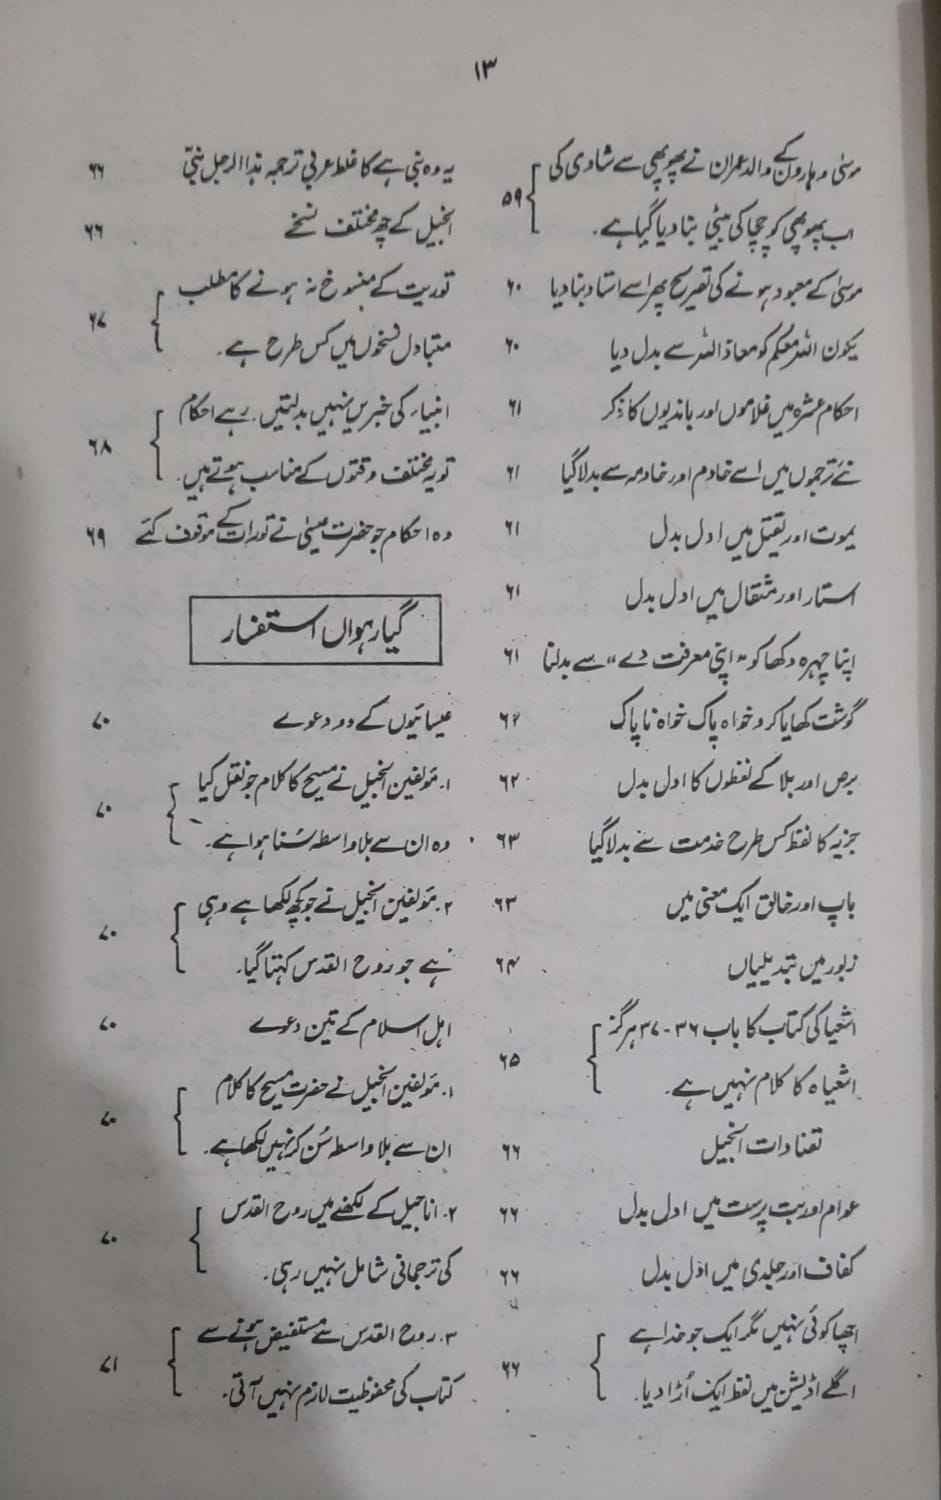 ۱۳
موسیٰ و ہارون کے والد عمران نے پھوپھی سے شادی کی
اب پھوپھی کو چچا کی بیٹی بنا دیا گیا ہے۔ ۵۹
موسیٰ کے معبود ہونے کی تصریح پھر اسے استاد بنا دیا ۶۰
یکون اللہ معکم کو معاذ اللہ سے بدل دیا ۶۰
احکام عشرہ میں غلاموں اور باندیوں کا ذکر ۶۱
نئے ترجموں میں اسے خادم اور خادمہ سے بدلا گیا ۶۱
یموت اور یقتل میں ادل بدل ۶۱
استار اور مثقال میں ادل بدل ۶۱
اپنا چہرہ دکھا کو "اپنی معرفت دے" سے بدلنا ۶۱
گوشت کھایا کرو خواہ پاک خواہ ناپاک ۶۲
برص اور بلا کے لفظوں کا ادل بدل ۶۲
جزیہ کا لفظ کس طرح خدمت سے بدلا گیا ۶۳
باپ اور خالق ایک معنی میں ۶۳
زبور میں تبدیلیاں ۶۴
اشعیا کی کتاب کا باب ۳۶-۳۷ ہرگز
اشعیاہ کا کلام نہیں ہے۔ ۶۵
تضادات انجیل ۶۶
عوام اور بت پرست میں ادل بدل ۶۶
کفاف اور جلدی میں ادل بدل ۶۶
اچھا کوئی نہیں مگر ایک جو خدا ہے
اگلے اڈیشن میں لفظ ایک اڑا دیا۔ ۶۶
یہ وہ نبی ہے کا غلط عربی ترجمہ ہذا الرجل نبیّ ۶۶
انجیل کے چھ مختلف نسخے ۶۶
توریت کے منسوخ نہ ہونے کا مطلب
متبادل نسخوں میں کس طرح ہے۔ ۶۷
انبیاء کی خبریں نہیں بدلتیں۔ رہے احکام
تو یہ مختلف وقتوں کے مناسب ہوتے ہیں۔ ۶۸
وہ احکام جو حضرت عیسیٰ نے تورات کے موقوف کئے ۶۹
گیارہواں استفسار
عیسائیوں کے دو دعوے ۷۰
۱۔ مؤلفین انجیل نے مسیح کا کلام جو نقل کیا
وہ ان سے بلاواسطہ سُنا ہوا ہے۔ ۷۰
۲۔ مؤلفین انجیل نے جو کچھ لکھا ہے وہی
ہے جو روح القدس کہتا گیا۔ ۷۰
اہل اسلام کے تین دعوے ۷۰
۱۔ مؤلفین انجیل نے حضرت مسیح کا کلام
ان سے بلاواسطہ سُن کر نہیں لکھا ہے۔ ۷۰
۲۔ اناجیل کے لکھنے میں روح القدس
کی ترجمانی شامل نہیں رہی۔ ۷۰
۳۔ روح القدس سے مستفیض ہونے سے
کتاب کی محفوظیت لازم نہیں آتی۔ ۷۱